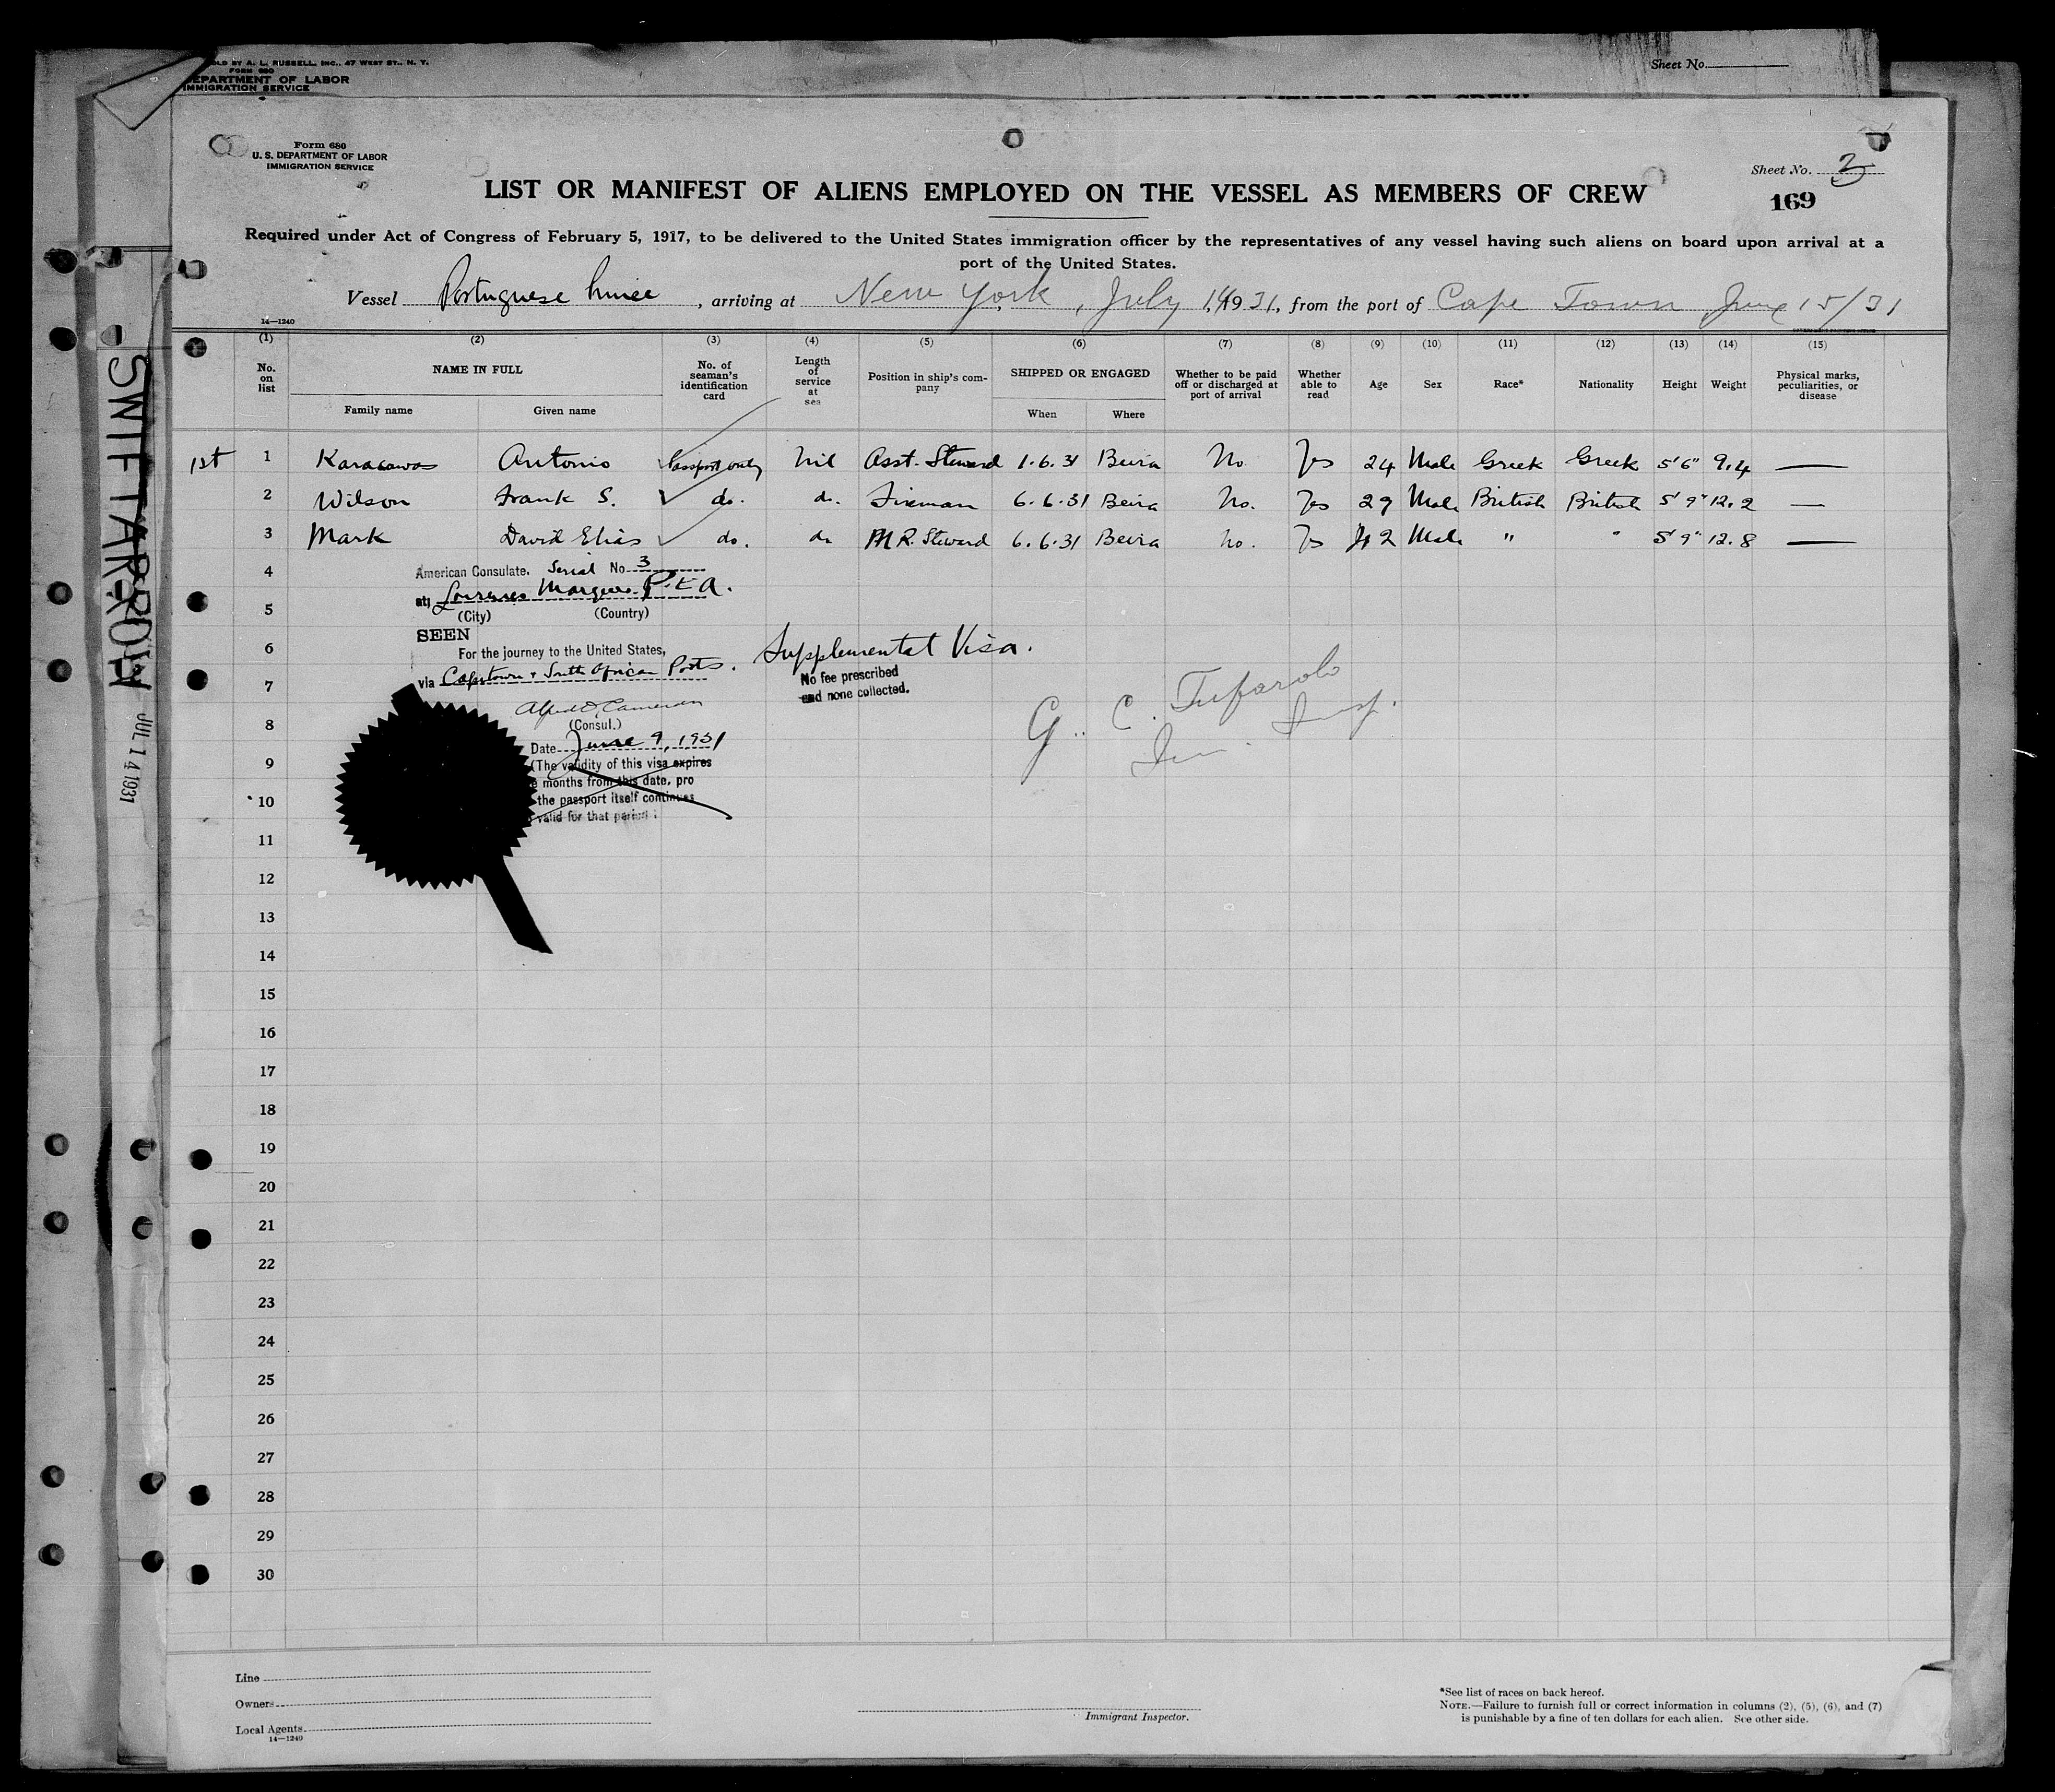 SOLD BY A. L. RUSSELL, INC., 47 WEST ST., N. Y.
FORM 680
DEPARTMENT OF LABOR
IMMIGRATION SERVICE
Sheet No.
Form 680
U. S. DEPARTMENT OF LABOR
IMMIGRATION SERVICE
Sheet No. 3
169
LIST OR MANIFEST OF ALIENS EMPLOYED ON THE VESSEL AS MEMBERS OF CREW
Required under Act of Congress of February 5, 1917, to be delivered to the United States immigration officer by the representatives of any vessel having such aliens on board upon arrival at a
port of the United States.
Vessel Portuguese Prince, arriving at New York, July 14, 1931, from the port of Cape Town June 15/31
14—1240
(1) (2) (3) (4) (5) (6) (7) (8) (9) (10) (11) (12) (13) (14) (15)
No. on list NAME IN FULL Family name Given name No. of seaman's identification card Length of service at sea Position in ship's company SHIPPED OR ENGAGED When Where Whether to be paid off or discharged at port of arrival Whether able to read Age Sex Race* Nationality Height Weight Physical marks, peculiarities, or disease
1st 1 Antonio Passport only Nil Asst. Steward 1.6.31 Beira No. Yes 24 Male Greek Greek 5'6" 9.4 —
2 Wilson Frank S. do. do. Fireman 6.6.31 Beira No. Yes 29 Male British British 5'9" 12.2 —
3 Mark David Elias do. do M.R. Steward 6.6.31 Beira No. Yes 42 Male " " 5'9" 12.8 —
4
American Consulate. Serial No. 3
at Lourenco Marques P.E.A.
5
(City) (Country)
SEEN
6
For the journey to the United States,
via Capetown & South African Ports.
Supplemental Visa.
No fee prescribed
and none collected.
7
Alfred D. Cameron
8
(Consul.)
Date June 9, 1931
G. C. Tufarolo
Im. Insp.
9
(The validity of this visa expires
months from this date, pro
10
the passport itself continues
valid for that period
11
12
13
14
15
16
17
18
19
20
21
22
23
24
25
26
27
28
29
30
SWIFTARROW
JUL 14 1931
Line
Owners
Local Agents
14—1240
Immigrant Inspector.
*See list of races on back hereof.
NOTE.—Failure to furnish full or correct information in columns (2), (5), (6), and (7)
is punishable by a fine of ten dollars for each alien. See other side.